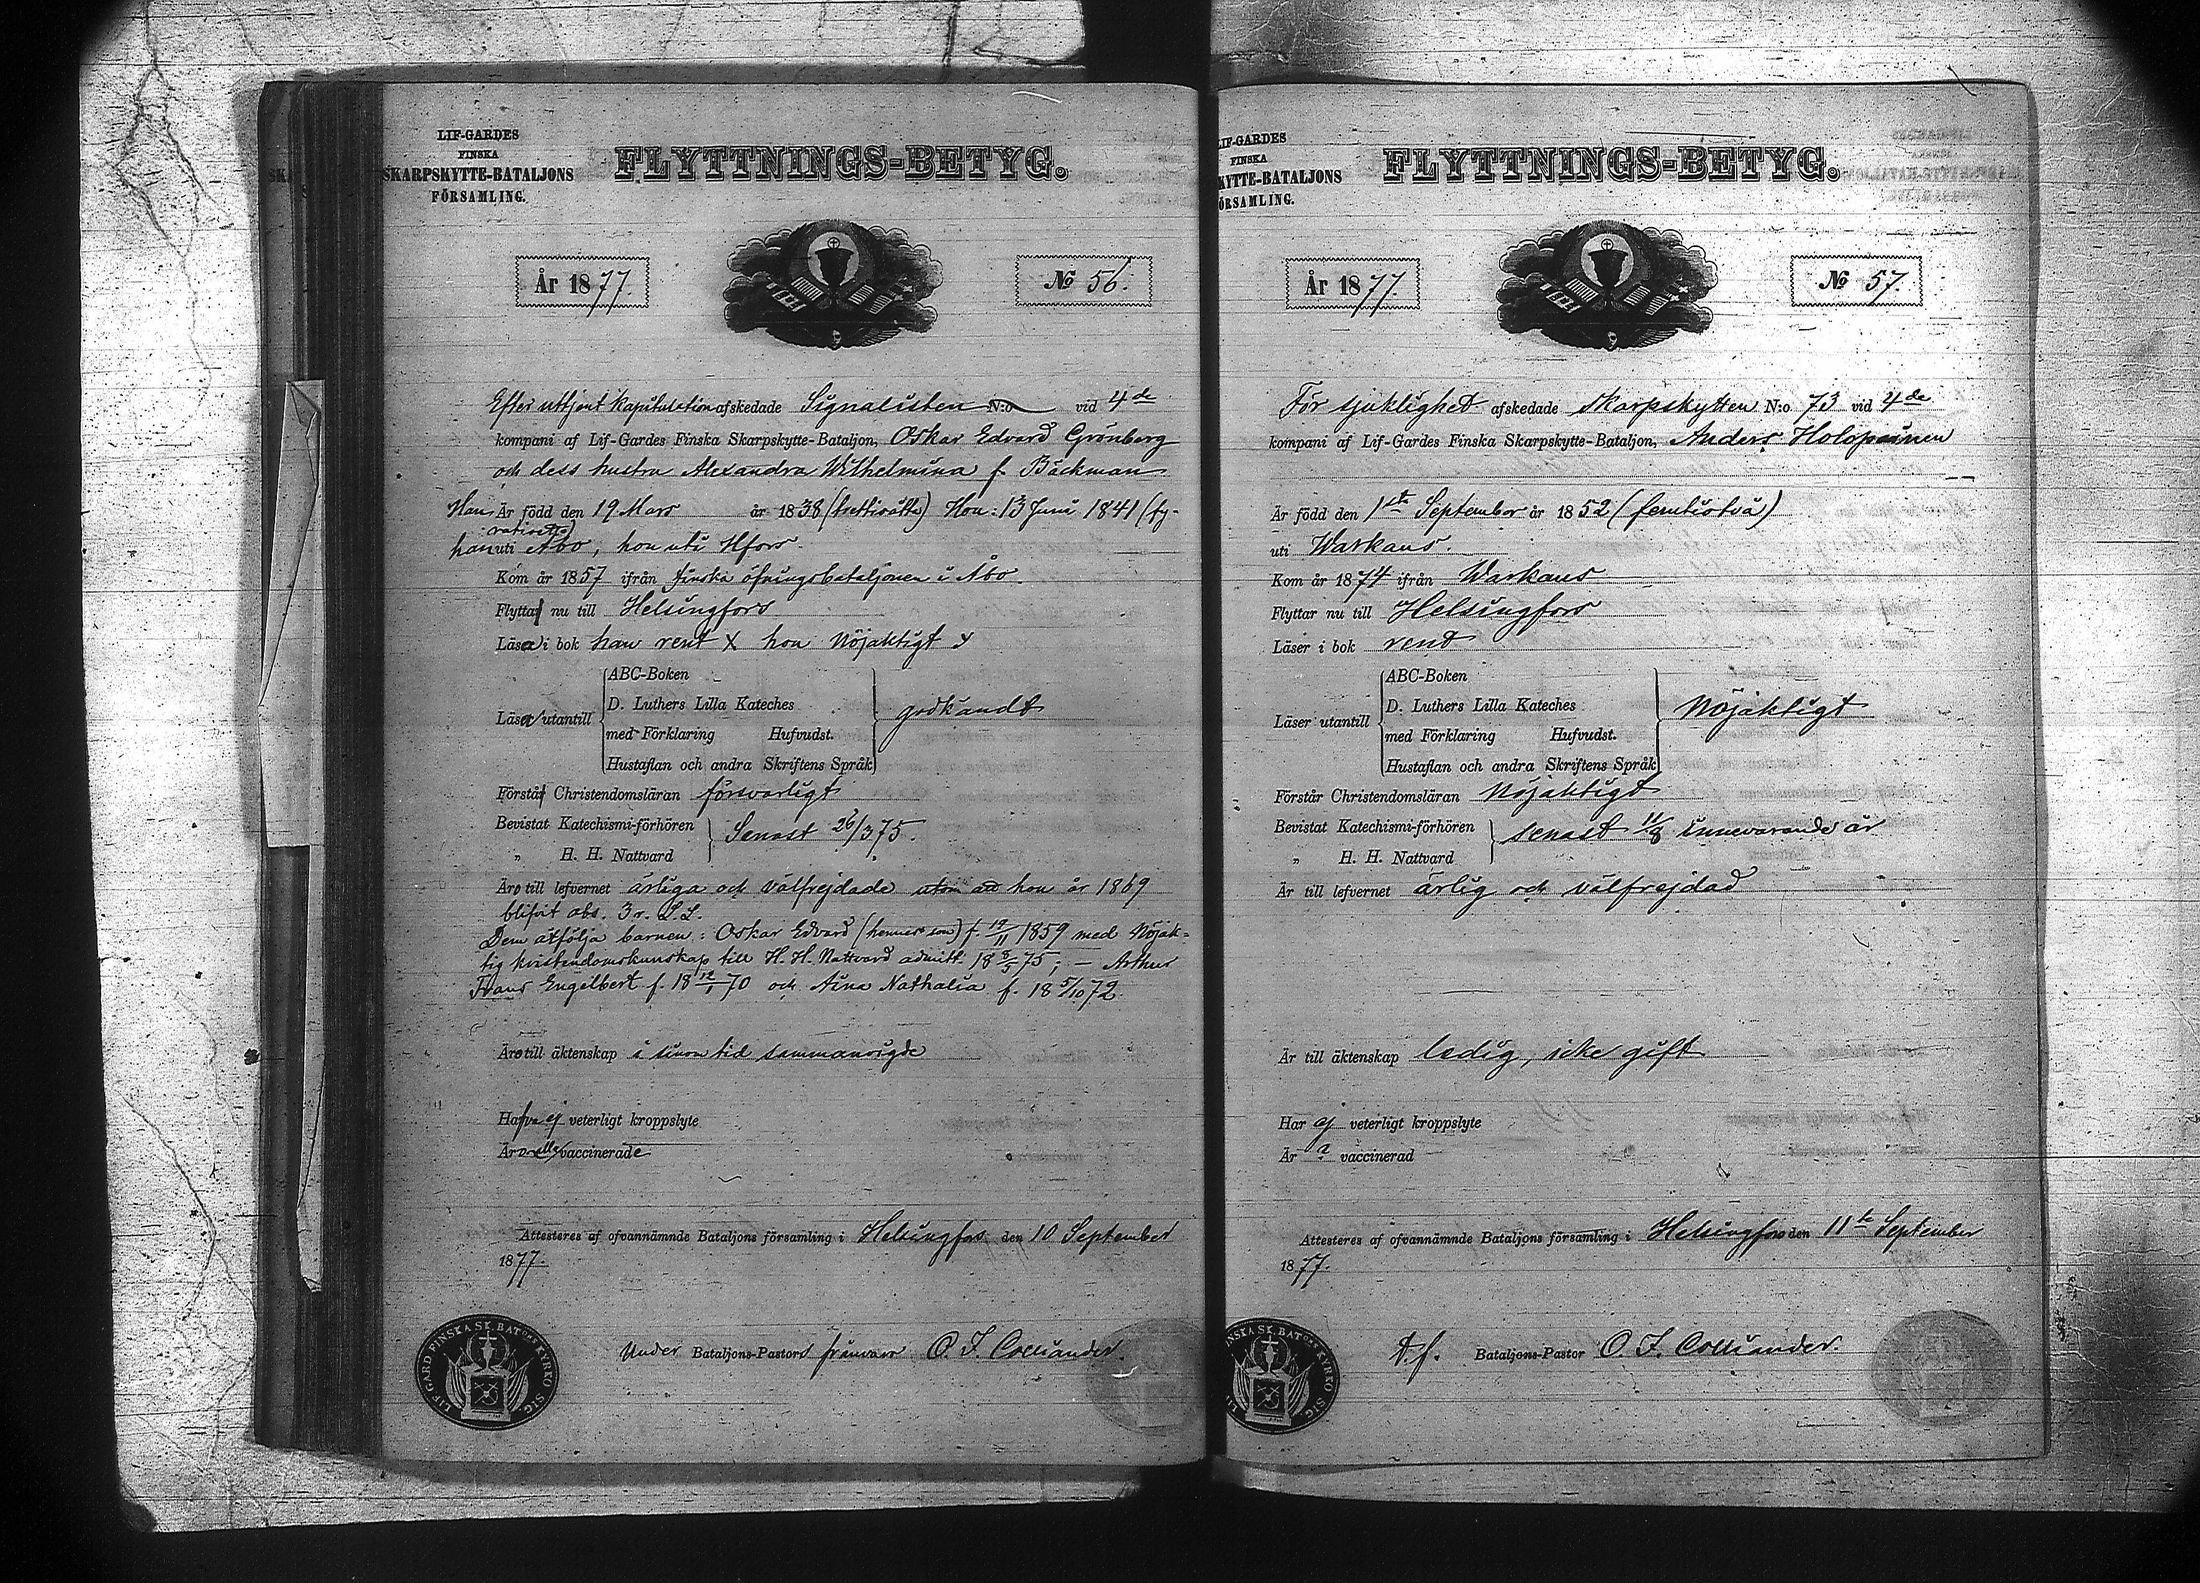 LIF-GARDES
FINSKA
SKARPSKYTTE-BATALJONS
FÖRSAMLING.
FLYTTNINGS-BETYG.
År 1877.
No 56.
Efter uttjent kapitulation afskedade Signalisten N:o vid 4de
kompani af Lif-Gardes Finska Skarpskytte-Bataljon, Oskar Edvard Grönberg
och dess hustru Alexandra Wilhelmina f. Bäckman
Han Är född den 19 Mars år 1838 (trettiåtta) Hon: 13 Juni 1841 (fy-
ratioett)
han uti Åbo, hon uti Hfors.
Kom år 1857 ifrån finska öfningsbataljonen i Åbo.
Flytta nu till Helsingfors
Läsa i bok han rent x hon Nöjaktigt x
Läsa utantill
ABC-Boken
D. Luthers Lilla Kateches
med Förklaring Hufvudst.
Hustaflan och andra Skriftens Språk
godkändt
Förstå Christendomsläran försvarligt
Bevistat Katechismi-förhören
„ H. H. Nattvard
Senast 26/3 75.
Äro till lefvernet ärliga och välfrejdade utom att hon år 1869
blifvit abs. 3 r. L.L.
Dem åtfölja barnen: Oskar Edvard (hennes son) f. 19/11 1859 med Nöjak-
tig kristendomskunskap till H. H. Nattvard admitt. 18 8/5 75; – Arthur
Frans Engelbert f. 18 12/1 70 och Aina Nathalia f. 18 5/10 72.
Äro till äktenskap i sinom tid sammanvigde
Hafva ej veterligt kroppslyte
Äro alle vaccinerade
Attesteres af ofvannämnde Bataljons församling i Helsingfors den 10 September
1877.
Under Bataljons-Pastors frånvaro O. F. Colliander.
LIF GARD FINSKA SK. BATONS KYRKO SIG.
LIF-GARDES
FINSKA
KYTTE-BATALJONS
ÖRSAMLING.
FLYTTNINGS-BETYG.
År 1877.
No 57.
För sjuklighet afskedade Skarpskytten N:o 73 vid 4de
kompani af Lif-Gardes Finska Skarpskytte-Bataljon, Anders Holopainen
Är född den 1sta September år 1852 (femtiotvå)
uti Warkaus.
Kom år 1874 ifrån Warkaus
Flyttar nu till Helsingfors
Läser i bok rent
Läser utantill
ABC-Boken
D. Luthers Lilla Kateches
med Förklaring Hufvudst.
Hustaflan och andra Skriftens Språk
Nöjaktigt
Förstår Christendomsläran Nöjaktigt
Bevistat Katechismi-förhören
„ H. H. Nattvard
senast 11/8 innevarande år
Är till lefvernet ärlig och välfrejdad
Är till äktenskap ledig, icke gift
Har ej veterligt kroppslyte
Är ? vaccinerad
Attesteres af ofvannämnde Bataljons församling i Helsingfors den 11te September
1877.
T.f. Bataljons-Pastor O. F. Colliander.
INSKA SK. BATONS KYRKO SIG.